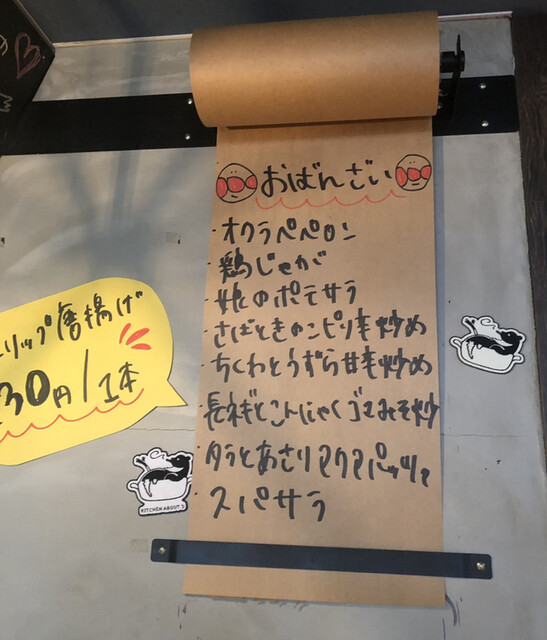 おばんざい
・オクラペペロン
・鶏じゃが
・姫のポテサラ
・さばときのこピリ辛炒め
・ちくわとうずら甘辛炒め
・長ネギとこんにゃくゴマみそ炒
・タラとあさりアクアパッツァ
・スパサラ
リップ唐揚げ
30円/1本
KITCHEN ABOUT